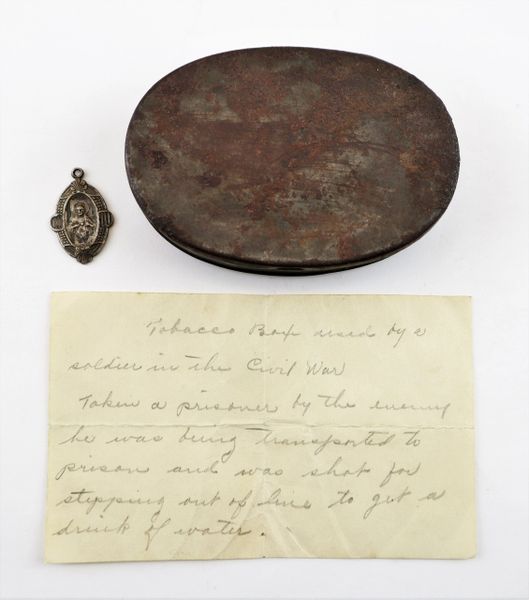 Tobacco Box used by a
soldier in the Civil War
Taken a prisoner by the enemy
he was being transported to
prison and was shot for
stepping out of line to get a
drink of water.